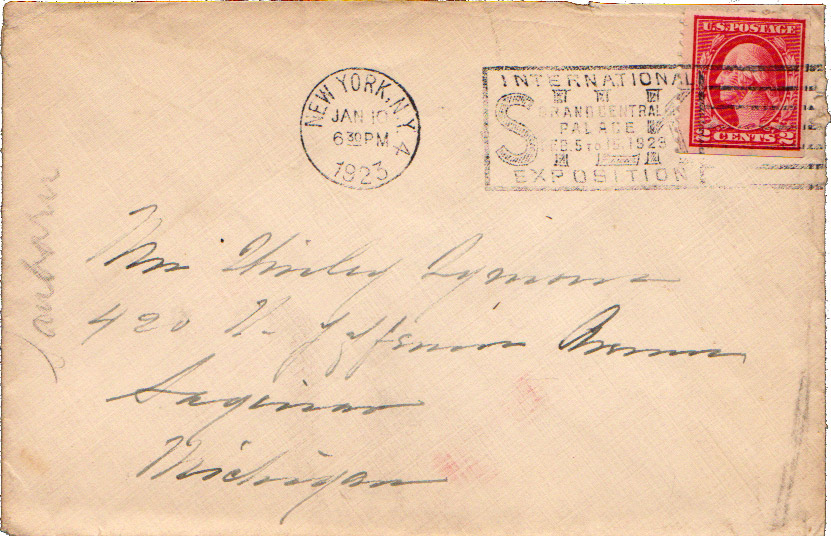 U.S. POSTAGE
2 CENTS 2
NEW YORK, N.Y. 4
JAN 10
6 30 PM
1923
INTERNATIONAL
SILK
GRAND CENTRAL
PALACE
FEB. 5 TO 15, 1923
EXPOSITION
Sanborn
420 N. Jefferson Avenue
Saginaw
Michigan